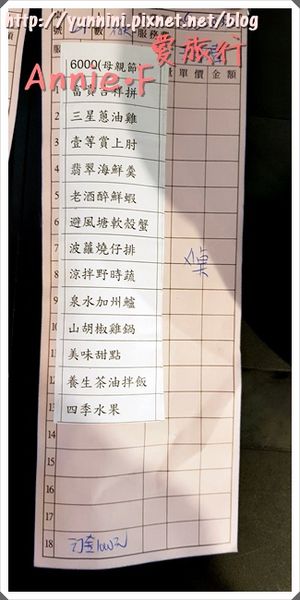 http://yunnini.pixnet.net/blog
愛旅行
Annie·F
號 數 服務費
單價 金額
6000(母親節
富貴吉祥拼
2 三星蔥油雞
3 壹等賞上肘
4 翡翠海鮮羹
5 老酒醉鮮蝦
6 避風塘軟殼蟹
7 波蘿燒仔排
8 涼拌野時蔬
9 泉水加州鱸
10 山胡椒雞鍋
11 美味甜點
12 養生茶油拌飯
13 四季水果
14
15
16
17
18 訂金1000元